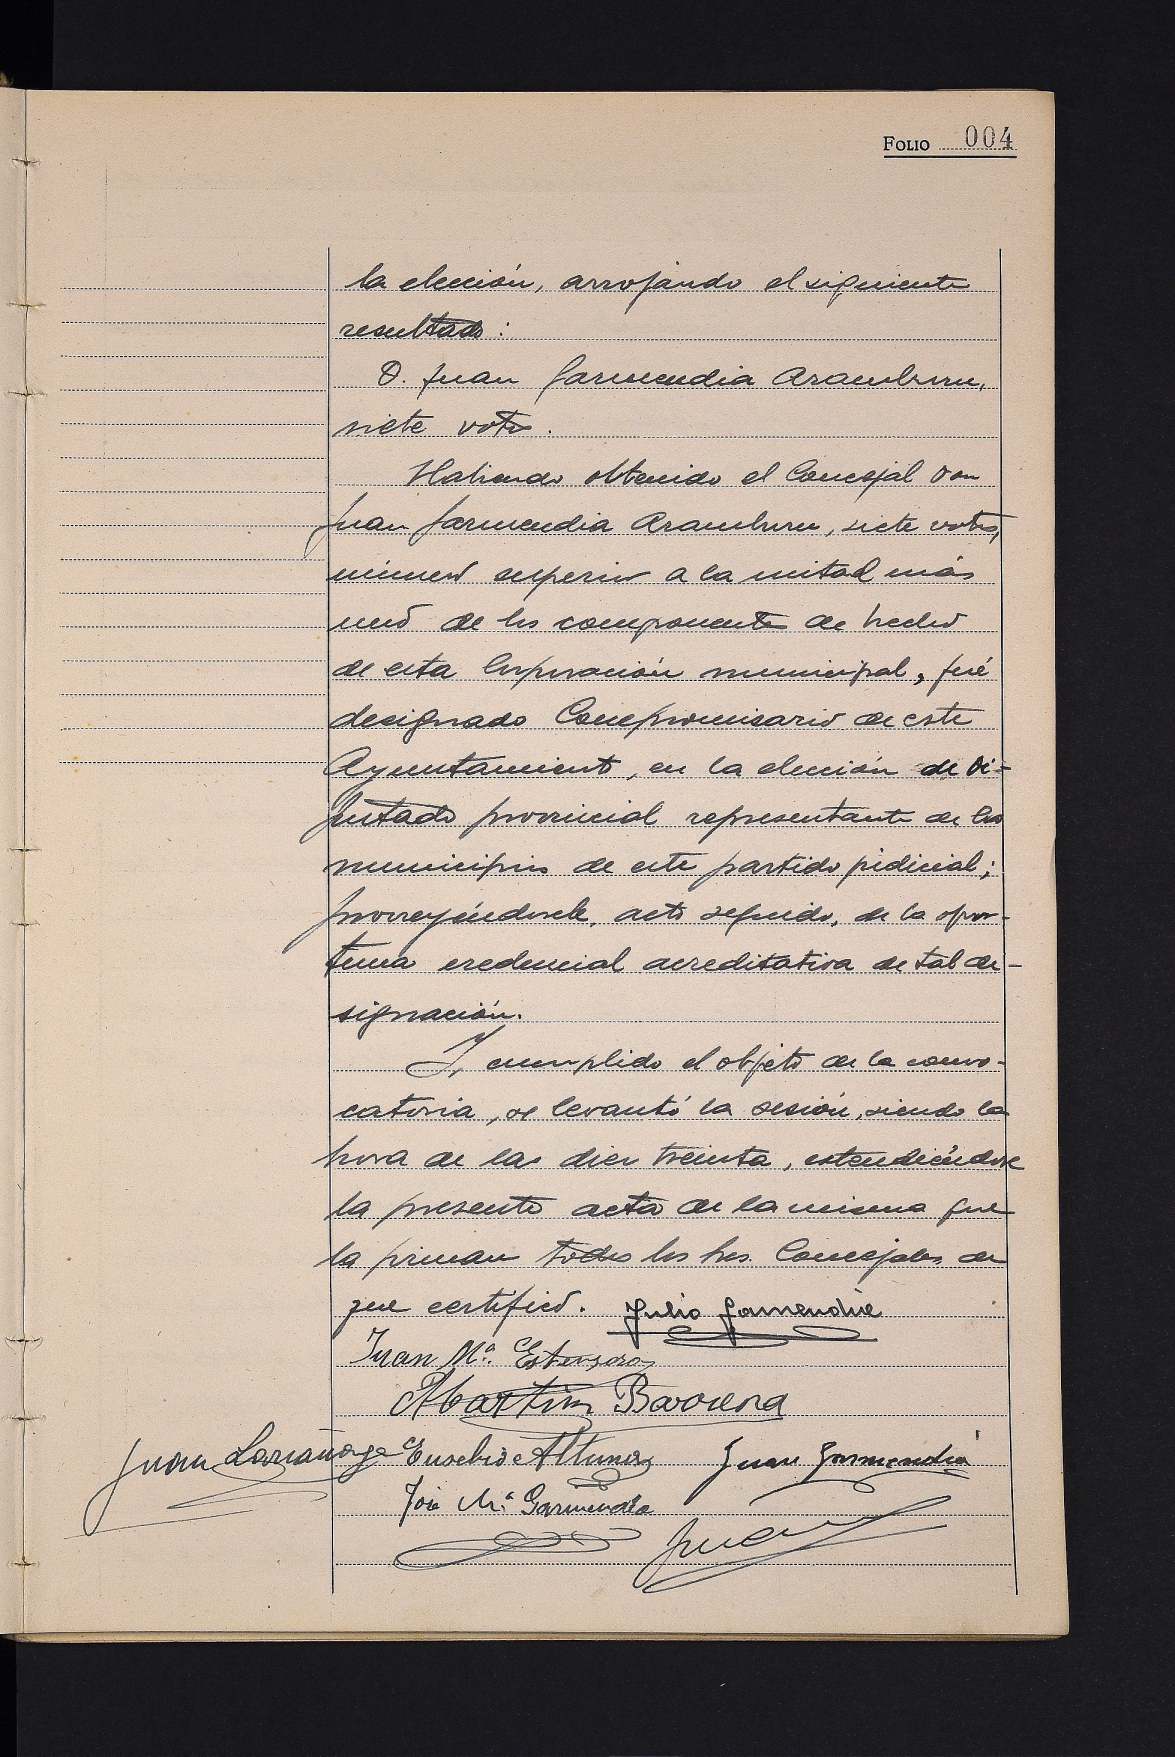 FOLIO 004
la elección, arrojando el siguiente
resultado:
D. Juan Garmendia Aramburu,
siete votos.
Habiendo obtenido el Concejal Don
Juan Garmendia Aramburu, siete votos,
número superior a la mitad más
uno de los componentes de hecho
de esta Corporación municipal, fué
designado Compromisario de este
Ayuntamiento, en la elección de Di-
putado provincial representante de los
municipios de este partido judicial;
proveyéndosele, acto seguido, de la opor-
tuna credencial acreditativa de tal de-
signación.
Y, cumplido el objeto de la convo-
catoria, se levantó la sesión, siendo la
hora de las diez treinta, extendiéndose
la presente acta de la misma que
la firman todos los Sres. Concejales, de
que certifico. Julio Garmendia
Juan Mª.
Martin Barrena
Juan Larrañaga Eusebio Altuna Juan Garmendia
José Mª Garmendia